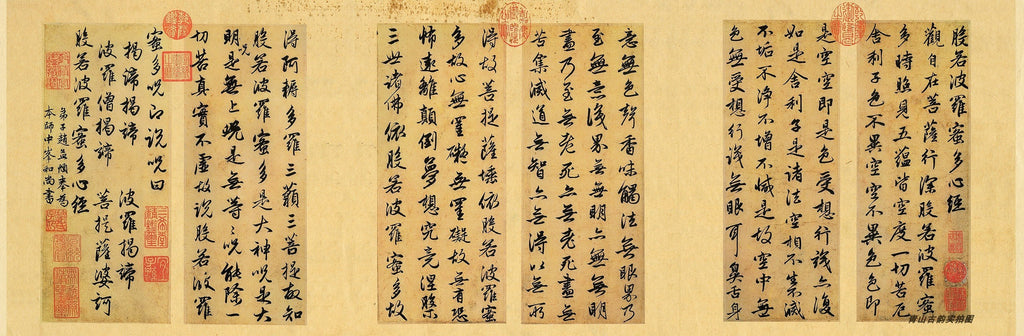 般若波羅蜜多心經
觀自在菩薩行深般若波羅蜜
多時照見五蘊皆空度一切苦厄
舍利子色不異空空不異色色即
是空空即是色受想行識亦復
如是舍利子是諸法空相不生不滅
不垢不淨不增不減是故空中無
色無受想行識無眼耳鼻舌身
意無色聲香味觸法無眼界乃
至無意識界無無明亦無無明
盡乃至無老死亦無老死盡無
苦集滅道無智亦無得以無所
得故菩提薩埵依般若波羅蜜
多故心無罣礙無罣礙故無有恐
怖遠離顛倒夢想究竟涅槃
三世諸佛依般若波羅蜜多故
得阿耨多羅三藐三菩提故知
般若波羅蜜多是大神呪是大
明呪是無上呪是無等等呪能除一
切苦真實不虛故說般若波羅
蜜多呪即說呪曰
揭諦揭諦 波羅揭諦
波羅僧揭諦 菩提薩婆訶
般若波羅蜜多心經
弟子趙孟頫奉為
本師中峯和尚書
青山古韵实拍图